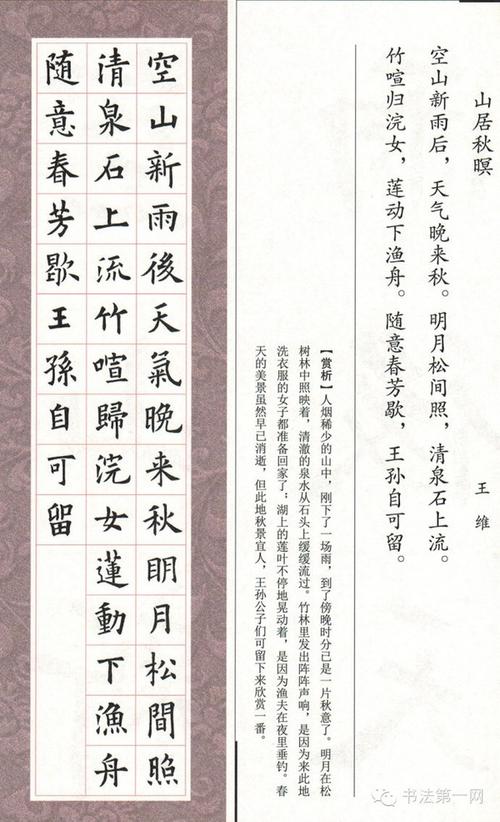 山居秋暝
王维
空山新雨后，天气晚来秋。明月松间照，清泉石上流。
竹喧归浣女，莲动下渔舟。随意春芳歇，王孙自可留。
【赏析】人烟稀少的山中，刚下了一场雨，到了傍晚时分已是一片秋意了。明月在松
树林中照映着，清澈的泉水从石头上缓缓流过。竹林里发出阵阵声响，是因为来此地
洗衣服的女子都准备回家了；湖上的莲叶不停地晃动着，是因为渔夫在夜里垂钓。春
天的美景虽然早已消逝，但此地秋景宜人，王孙公子们可留下来欣赏一番。
空山新雨後天氣晚来秋明月松間照
清泉石上流竹喧歸浣女蓮動下漁舟
随意春芳歇王孫自可留
书法第一网